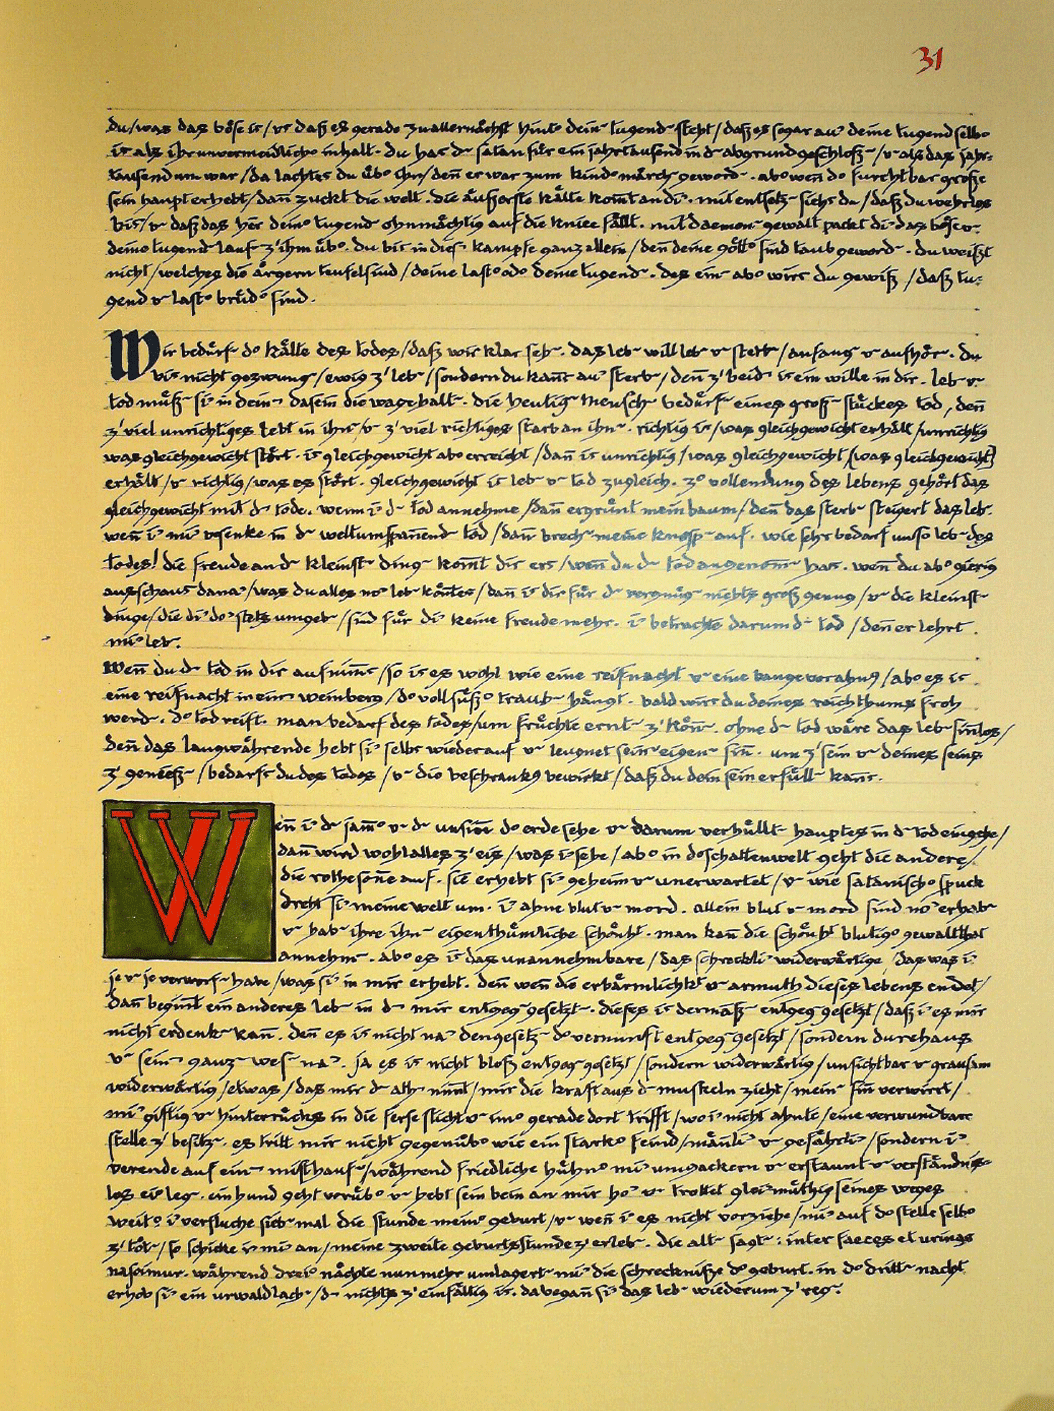 31
du/was das böse is/v daß es gerade zuallernächst hinto dein tugend steht/daß es sogar au' deine tugend selbo
is als ihr unvermeidlicho inhalt. du has d satan für ein jahrtausend in d abgrund geschloß/v als das jahr-
tausend um war/da lachtes du übo ihn/deñ er war zum kindo märch geword. abo weñ do furchtbar große
sein haupt erhebt/dañ zuckt die welt. die äußerste kälte kom̃t an di'. mit entsetz siehs du/daß du wehrlos
bis/v daß das heer deino tugend ohnmächtig auf die kniee fällt. mit daemon gewalt packt di' das böse v
deine tugend lauf z' ihm übo. du bis in dies kampfe ganz allein/deñ deine götto sind taub geword. du weißt
nicht/welches die ärgern teufel sind/deine lasto odo deine tugend. des ein abo wirs du gewiß/daß tu-
gend v lasto brüdo sind.
Wir bedürf do kälte des todes/daß wir klar seh. das leb will leb v sterb/anfang v aufhör. du
bis nicht gezwung/ewig z' leb/sondern du kañs au' sterb/deñ z' beid is ein wille in dir. leb v
tod müß si' in dein dasein die wage halt. die heutig mensch bedürf eines groß stückes tod, deñ
z' viel unrichtiges lebt in ihn/v z' viel richtiges starb an ihn. richtig is/was gleichgewicht erhält/unrichtig
was gleichgewicht stört. is gleichgewicht abo erreicht/dañ is unrichtig/was gleichgewicht (was gleichgewicht)
erhält/v richtig/was es stört. gleichgewicht is leb v tod zugleich. zo vollendung des lebens gehört das
gleichgewicht mit d tode. wenn i' d tod annehme/dañ ergrünt mein baum/deñ das sterb steigert das leb.
weñ i' mi' vsenke in d weltumspañend tod/dañ brech meine knosp auf. wie sehr bedarf unso leb des
todes! die freude an d kleinst ding kom̃t dir ers/weñ du d tod angenom̃ has. weñ du abo gierig
ausschaus dana'/was du alles no' leb köñtes/dañ is dir für d vergnüg nichts groß genug/v die kleinst
dinge/die di' do stets umgeb/sind für di' keine freude mehr. i' betrachte darum d tod/deñ er lehrt
mi' leb.
weñ du d tod in dir aufnim̃s/so is es wohl wie eine reifnacht v eine bange vorahng/abo es is
eine reifnacht in ein weinberg/do voll süßo traub hängt. bald wirs du deines reichthums froh
werd. do tod reift. man bedarf des todes/um früchte ernt z' köñ. ohne d tod wäre das leb siñlos/
deñ das langwährende hebt si' selbs wieder auf v leugnet sein eigen siñ. um z' sein v deines seins
z' genieß/bedarfs du des todes/v die beschränkg bewirkt/daß du dein sein erfüll kañs.
Weñ i' d jam̃o v d unsiñ do erde sehe v darum verhüllt hauptes in d tod eingehe/
dañ wird wohl alles z' eis/was i' sehe/abo in do schattenwelt geht die andere/
die rothe soñe auf. sie erhebt si' geheim v unerwartet/v wie satanischo spuck
dreht si' meine welt um. i' ahne blut v mord. allein blut v mord sind no' erhab
v hab ihre ihn eigenthümliche schönht. man kañ die schönht blutigo gewaltthat
annehm. abo es is das unannehmbare/das schreckli' widerwärtige, das was i'
je v je verworf habe/was si' in mir erhebt. deñ weñ die erbärmlichkt v armuth dieses lebens endet/
dañ begiñt ein anderes leb in d mir entgeg gesetzt. dieses is dermaß entgeg gesetzt/daß i' es mir
nicht erdenk kañ. deñ es is nicht na' den gesetz do vernunft entgeg gesetzt/sondern durchaus
v sein ganz wes na'. ja es is nicht bloß entgeg gesetzt/sondern widerwärtig/unsichtbar v grausam
widerwärtig/etwas/das mir d ath nim̃t/mir die kraft aus d muskeln zieht/mein siñ verwirrt/
mi' giftig v hinterrücks in die ferse sticht v im̃o gerade dort trifft/wo i' nicht ahnte/eine verwundbare
stelle z' besitz. es tritt mir nicht gegenübo wie ein starko feind/mäñli' v gefährli'/sondern i'
verende auf ein misthauf/während friedliche hühno mi' umgackern v erstaunt v verständnis-
los eio leg. ein hund geht vorübo v hebt sein bein an mir ho' v trottet gleimüthig seines weges
weito. i' verfluche sieb mal die stunde meino geburt/v weñ i' es nicht vorziehe/mi' auf do stelle selbo
z' töt/so schicke i' mi' an/meine zweite geburtsstunde z' erleb. die alt sagt: inter faeces et urinas
nascimur. während dreio nächte nunmehr umlagert mi' die schreckniße do geburt. in do dritt nacht
erhob si' ein urwaldlach/d nichts z' einfältig is. da begañ si' das leb wiederum z' reg.